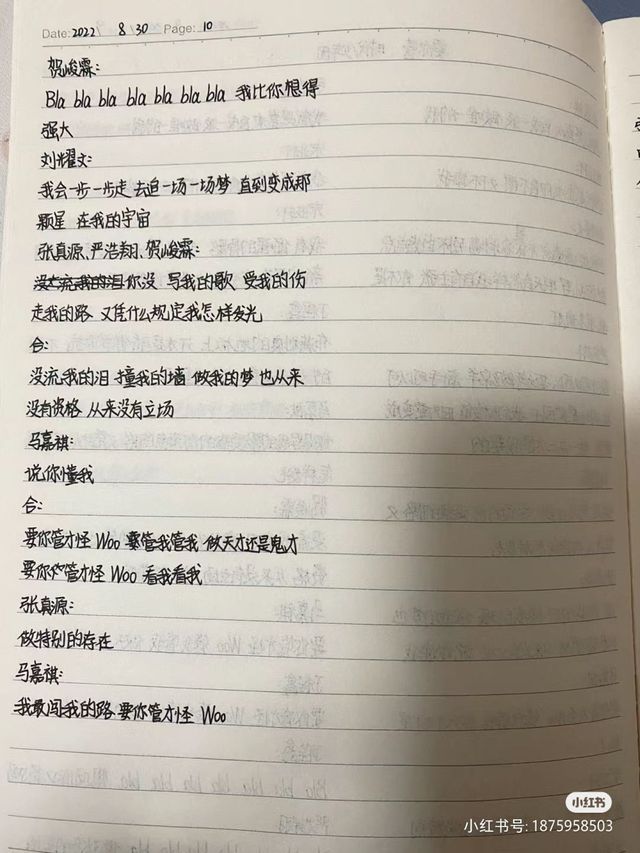 Date: 2022 8/30 Page: 10
贺峻霖:
Bla bla bla bla bla bla bla 我比你想得
强大
刘耀文:
我会一步一步走 去追一场一场梦 直到变成那
颗星 在我的宇宙
张真源、严浩翔、贺峻霖:
没有流我的泪你没 写我的歌 受我的伤
走我的路 又凭什么规定我怎样发光
合:
没流我的泪 撞我的墙 做我的梦 也从来
没有资格 从来没有立场
马嘉祺:
说你懂我
合:
要你管才怪 Woo 要管我管我 做天才还是鬼才
要你管才怪 Woo 看我看我
张真源:
做特别的存在
马嘉祺:
我敢闯我的路 要你管才怪 Woo
小红书
小红书号: 1875958503